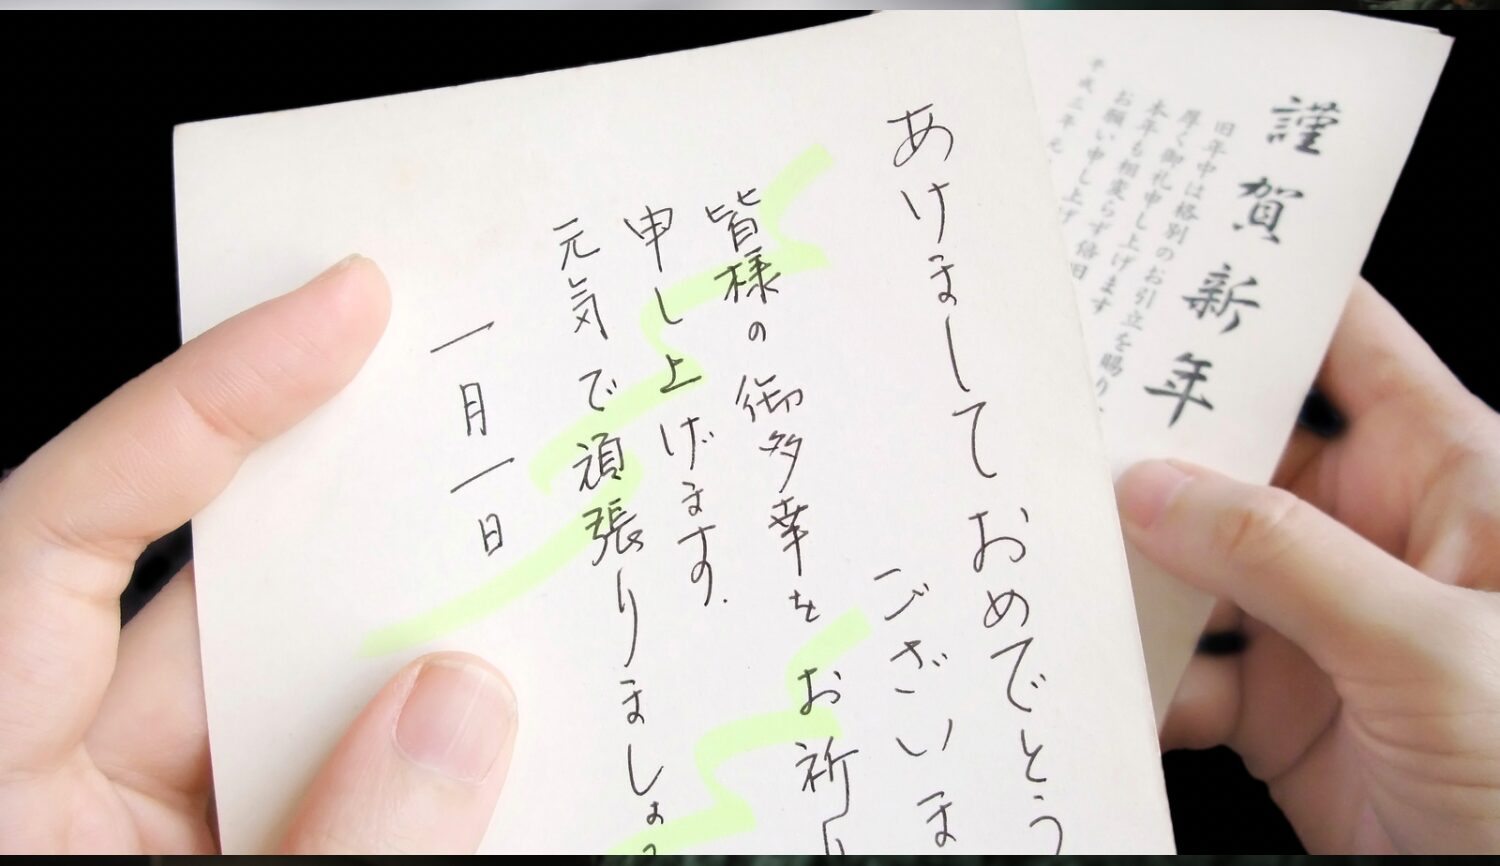 あけましておめでとう
ございま
皆様の御多幸をお祈り
申し上げます.
元気で頑張りましょう
一月一日
謹賀新年
旧年中は格別のお引立を賜り、
厚く御礼申し上げます
本年も相変らず倍旧
お願い申し上げ
平成三年元